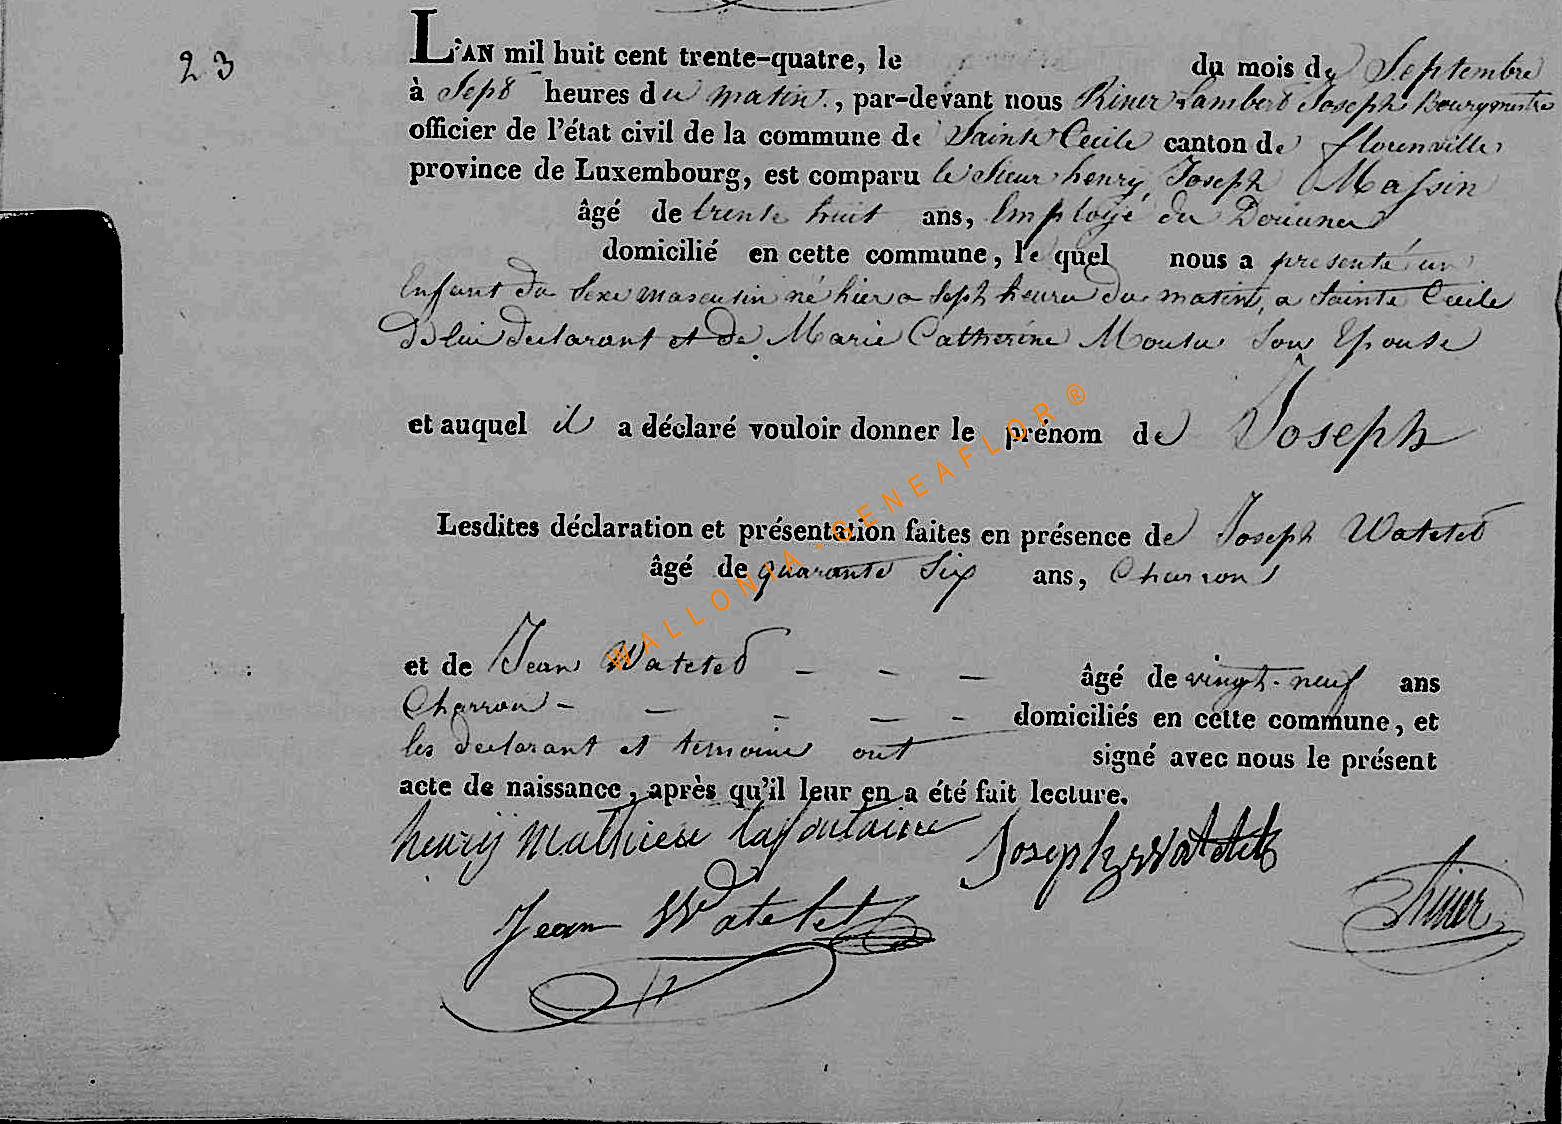 23
L'AN mil huit cent trente-quatre, le du mois de Septembre
à Sept heures du matin, par-devant nous Riner Lambert Joseph Bourgmestre
officier de l'état civil de la commune de Sainte Cecile canton de florenville
province de Luxembourg, est comparu le Sieur henry Joseph Massin
âgé de trente huit ans, Employé du Douanes
domicilié en cette commune, le quel nous a présenté un
Enfant du Sexe masculin né hier a Sept heures du matin, a Sainte Cecile
de lui declarant et de Marie Catherine Son Epouse
et auquel il a déclaré vouloir donner le prénom de Joseph
Lesdites déclaration et présentation faites en présence de Joseph Watelet
âgé de quarante Six ans, Charron
et de Jean Watelet - - - âgé de vingt-neuf ans
Charron - - - - - domiciliés en cette commune, et
les declarant et temoins ont signé avec nous le présent
acte de naissance, après qu'il leur en a été fait lecture.
henrij Mathieu lafontaine Joseph Watelet
Jean Watelet Riner
WALLONIA-GENEAFLOR®